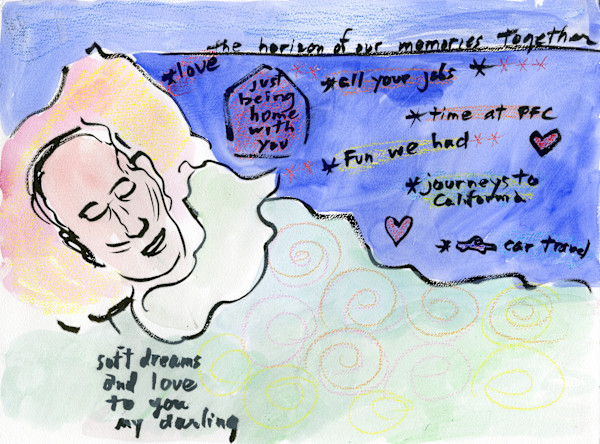 the horizon of our memories together
*love
just
being
home
with
you
*all your jobs *
*time at PFC
*Fun we had
*journeys to
California
* car travel
soft dreams
and love
to you
my darling